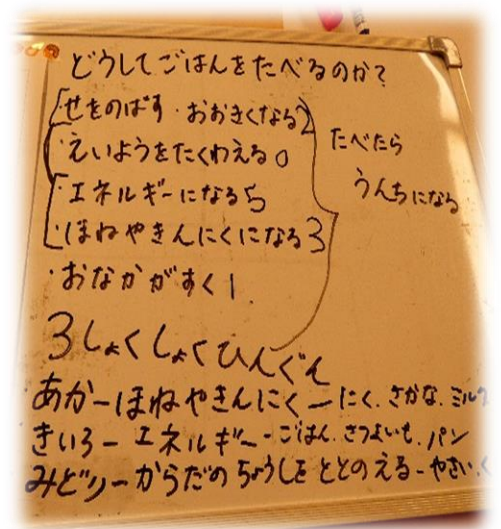 どうしてごはんをたべるのか?
・せをのばす・おおきくなる2
・えいようをたくわえる0
・エネルギーになる5
・ほねやきんにくになる3
・おなかがすく1
たべたら
うんちになる
3しょくしょくひんぐん
あかーほねやきんにくーにく、さかな、ミルク
きいろーエネルギーーごはん、さつまいも、パン
みどりーからだのちょうしをととのえるーやさい、く